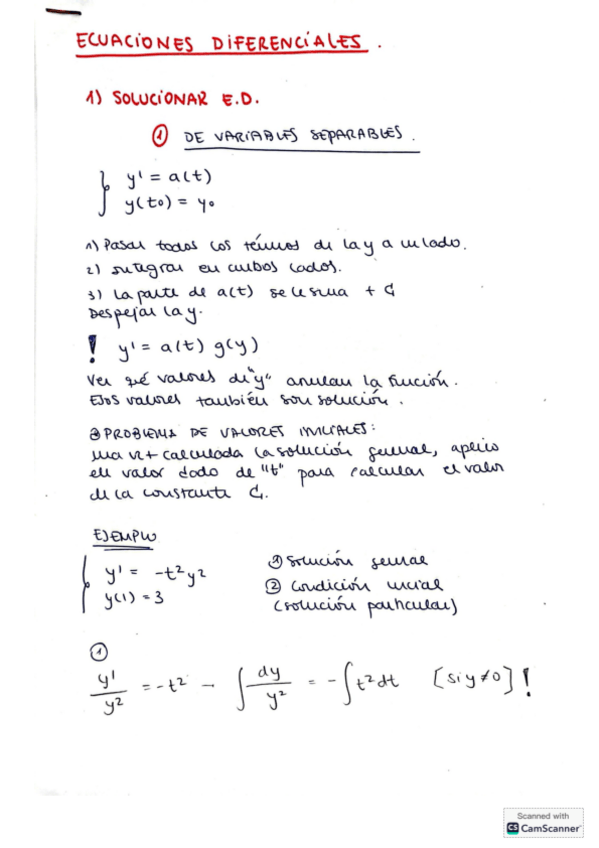 ECUACIONES DIFERENCIALES.
1) SOLUCIONAR E.D.
① DE VARIABLES SEPARABLES.
y' = a(t)
y(t0) = y0
1) Pasar todos los términos de la y a un lado.
2) Integrar en ambos lados.
3) La parte de a(t) se le suma + C
Despejar la y.
! y' = a(t) g(y)
Ver qué valores de "y" anulan la función.
Esos valores también son solución.
② PROBLEMA DE VALORES INICIALES:
una vez calculada la solución general, aplico
el valor dado de "t" para calcular el valor
de la constante C.
EJEMPLO
y' = -t² y²
y(1) = 3
① Solución general
② Condición inicial
(solución particular)
①
y'/y² = -t² → ∫ dy/y² = -∫ t² dt [si y≠0] !
Scanned with
CS CamScanner